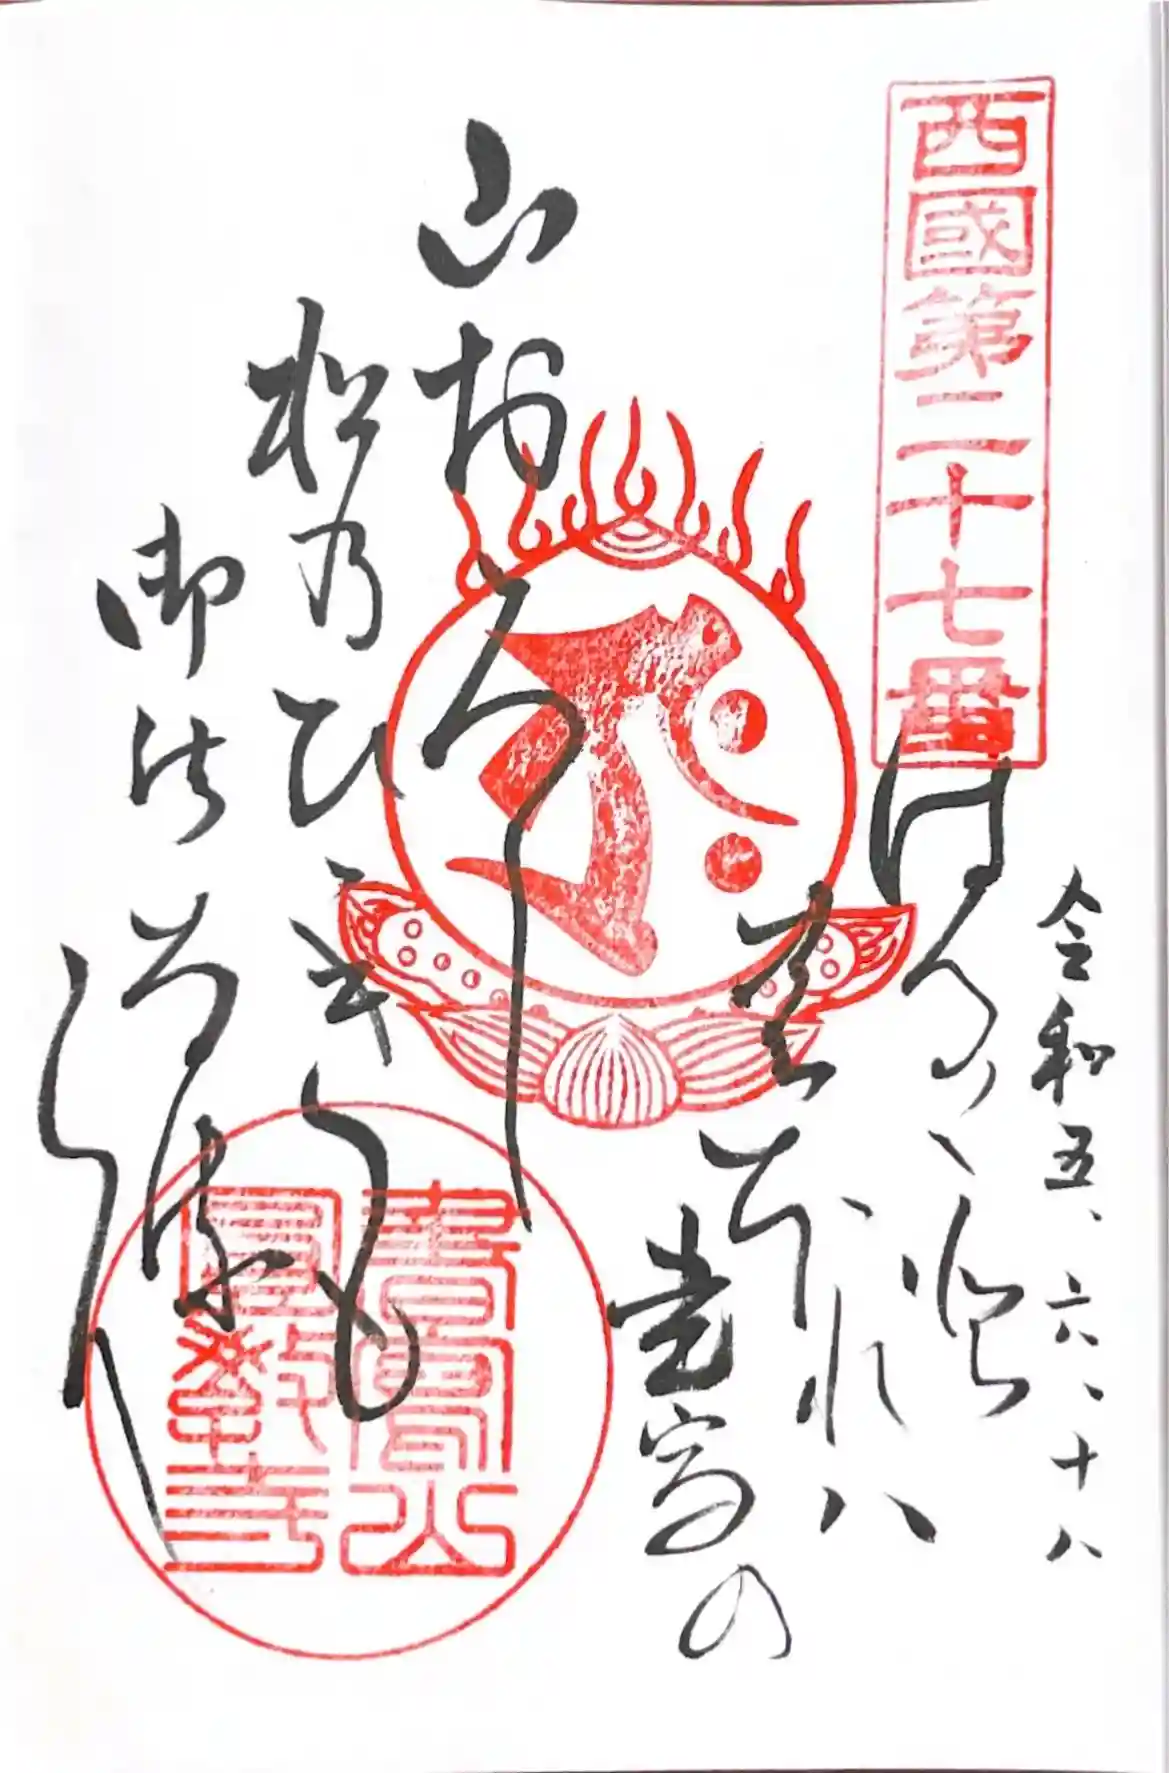 西國第二十七番
令和五、六、十八
はる〱と
のほれハ
書寫の
山おろし
松乃ひゝきも
御法なるらん
書寫山
圓教寺